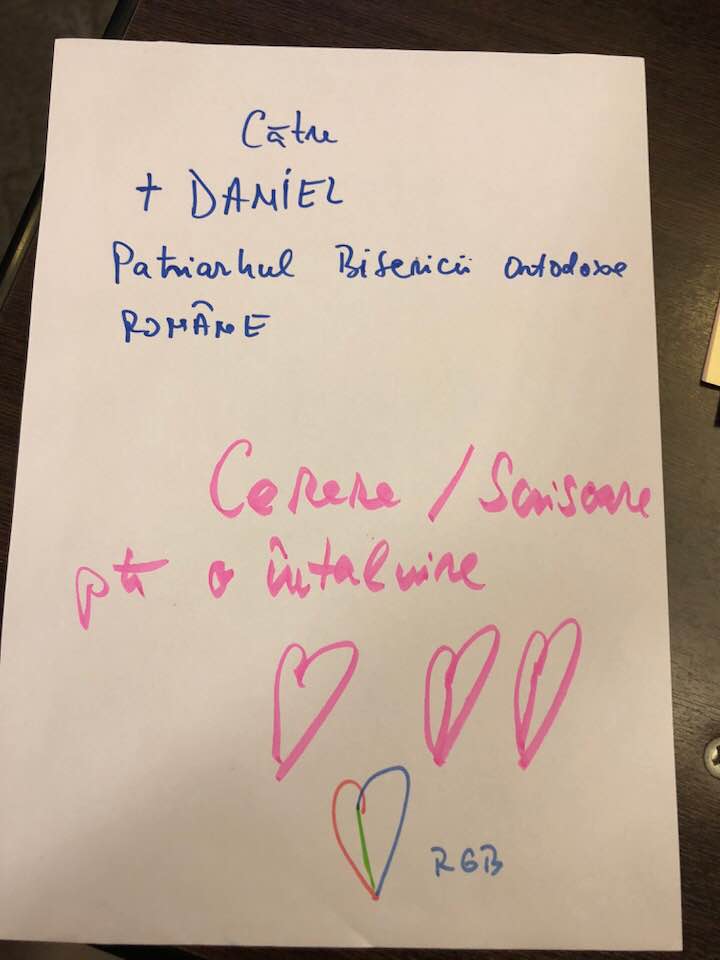 Către
+ DANIEL
Patriarhul Bisericii Ortodoxe
ROMÂNE
Cerere / Scrisoare
ptr o întalnire
RGB